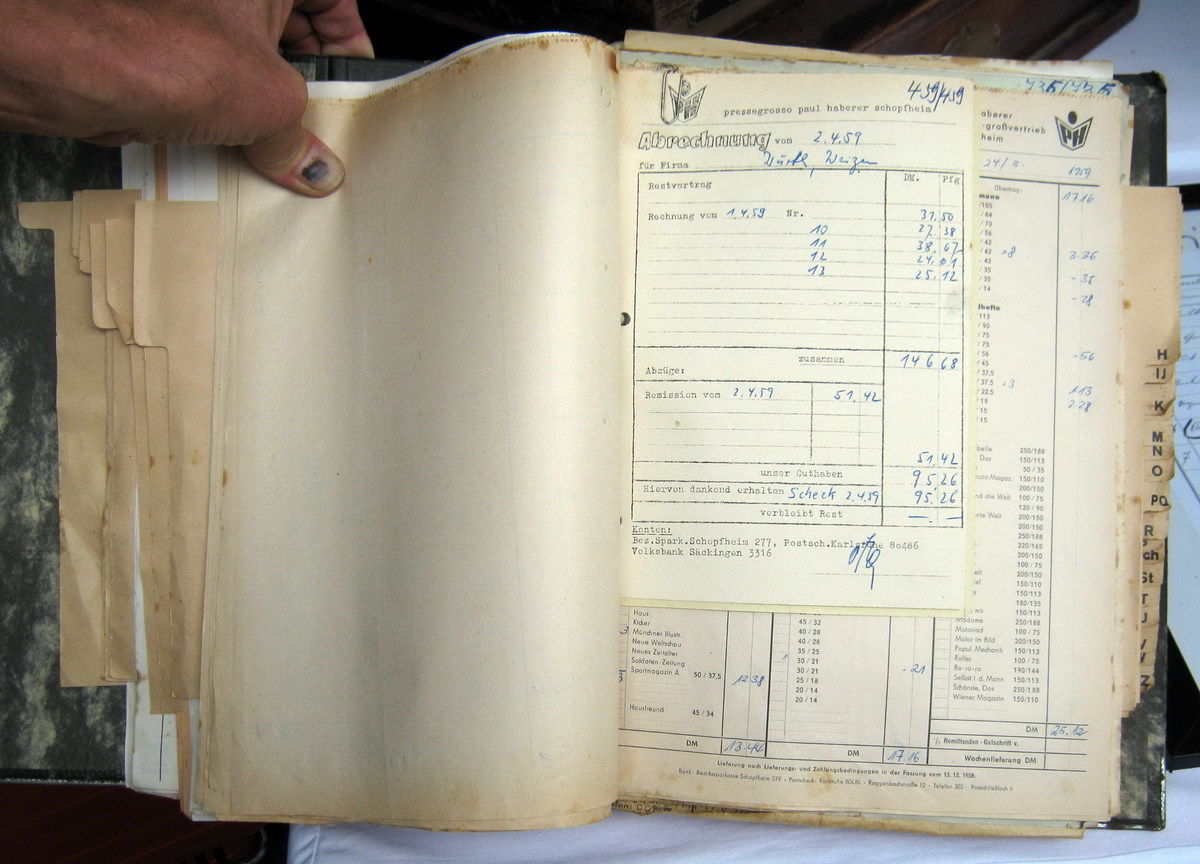 459/459
pressegrosso paul haberer schopfheim
Abrechnung vom 2.4.59
für Firma Würtl, Weizen
DM. Pfg
Restvortrag
Rechnung vom 1.4.59 Nr. 31.50
10 27.38
11 38.67
12 24.01
13 25.12
zusammen 146 68
Abzüge:
Remission vom 2.4.59 51.42
51.42
unser Guthaben 95.26
Hiervon dankend erhalten Scheck 2.4.59 95.26
verbleibt Rest —.—
Konten:
Bez.Spark.Schopfheim 277, Postsch.Karlsruhe 80486
Volksbank Säckingen 3316
oberer
-großvertrieb
heim
PH
24/8 1959
Übertrag: 17.16
/105
/84
/70
/56
/42
/42 8 3.36
/42
/35
/35 -35
/14 -28
lhefte
113
/90
/75
/75
/56 -56
/45
/37,5
/37,5 3 1.13
/22,5 2.28
19
15
/15
belle 250/188
Das 150/113
50/35
ccio-Magaz. 150/110
200/150
nd die Welt 100/75
120/90
nte Welt 200/150
200/150
250/188
220/165
200/150
100/75
200/150
150/110
150/113
180/135
150/113
Madame 250/188
Motorrad 100/75
Motor im Bild 200/150
Popul. Mechanik 150/113
Roller 100/75
Ra-ra-ra 190/144
Selbst i. d. Mann 150/113
Schönste, Das 250/188
Wiener Magazin 150/110
DM 25.12
./. Remittenden-Gutschrift v.
Wochenlieferung DM
Haus
Kicker
Münchner Illustr.
Neue Weltschau
Neues Zeitalter
Soldaten-Zeitung
Sportmagazin A 50/37,5 12 38
Hausfreund 45/34
DM 13.44
45/32
40/28
40/28
35/25
30/21
30/21 -21
25/18
20/14
20/14
DM 17.16
Lieferung nach Lieferungs- und Zahlungsbedingungen in der Fassung vom 15. 12. 1958.
Bank: Bezirkssparkasse Schopfheim 277 - Postscheck: Karlsruhe 80486 - Roggenbachstraße 12 - Telefon 302 - Postschließfach 6
H
IJ
K
M
N
O
PQ
R
S
ch
St
T
U
V
W
Z